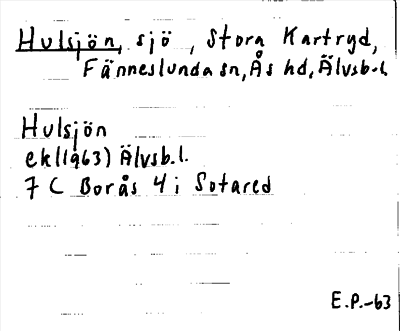 Hulsjön, sjö, Stora Kartryd,
Fänneslunda sn, Ås hd, Älvsb.l.
Hulsjön
ek(1963) Älvsb.l.
7 C Borås 4 i Sotared
E.P.-63